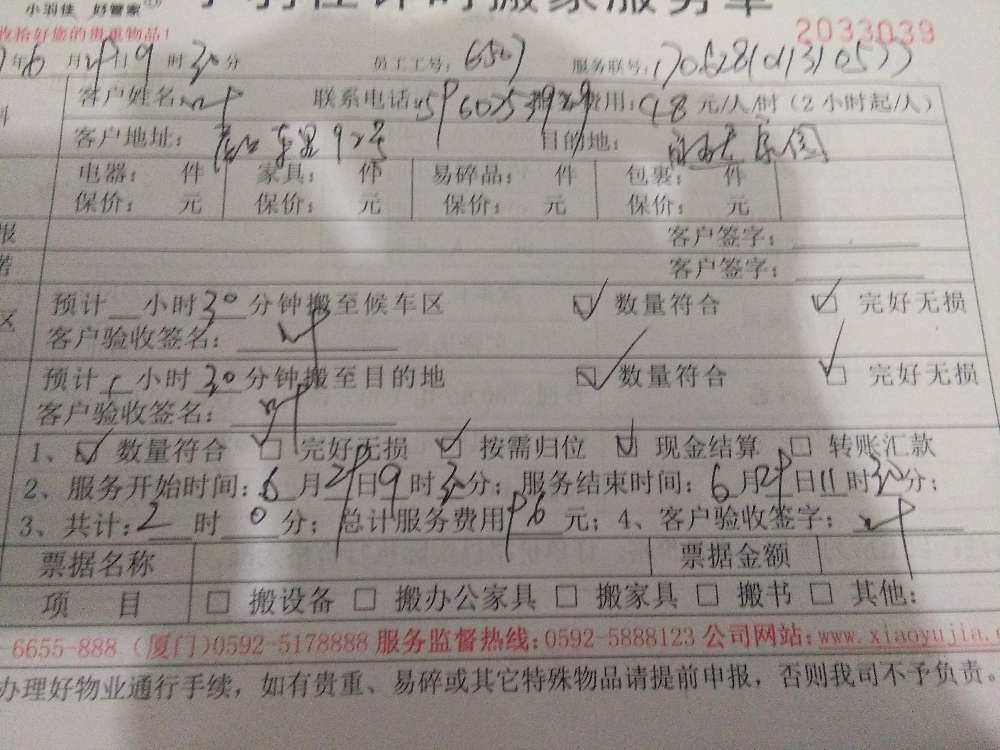 小羽佳 好管家 小羽佳计时搬家服务单
收拾好您的贵重物品! 2033039
年6月29日9时30分 员工工号: 6507 服务联号:
客户姓名: 叶 联系电话: 费用: 48元/人/时(2小时起/人)
客户地址: 东里92号 目的地:
电器: 件 家具: 件 易碎品: 件 包裹: 件
保价: 元 保价: 元 保价: 元 保价: 元
客户签字:
客户签字:
预计 小时30分钟搬至候车区 数量符合 完好无损
客户验收签名: 叶
预计1小时30分钟搬至目的地 数量符合 完好无损
客户验收签名: 叶
1、数量符合 完好无损 按需归位 现金结算 转账汇款
2、服务开始时间:6月29日9时30分; 服务结束时间:6月29日11时30分;
3、共计:2时0分; 总计服务费用96元; 4、客户验收签字: 叶
票据名称 票据金额
项 目 搬设备 搬办公家具 搬家具 搬书 其他:
-6655-888 (厦门)0592-5178888 服务监督热线:0592-5888123 公司网站:www.xiaoyujia.
办理好物业通行手续,如有贵重、易碎或其它特殊物品请提前申报,否则我司不予负责。